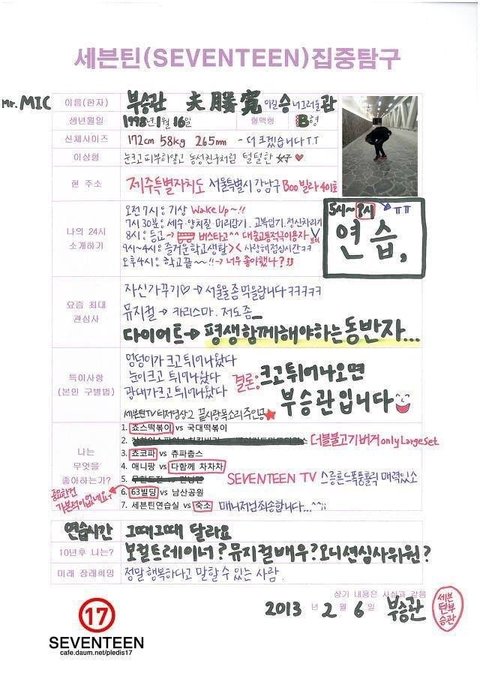 세븐틴(SEVENTEEN)집중탐구
Mr. MIC
이름(한자) 부승관 夫勝寬 이길 승 너그러울 관
생년월일 1998년 1월 16일 혈액형 B형
신체사이즈 172cm 58kg 265mm - 더 크겠습니다 T.T
이상형 눈크고 피부하얗고 남성친구처럼 털털한 여자 ♥
현 주소 제주특별자치도 서울특별시 강남구 Boo빌라 401호
나의 24시 소개하기
오전 7시 : 기상 Wake Up~!!
7시 30분 : 세수, 양치질, 머리감기, 교복입기, 정신차리기
8시 : 등교 → 버스타고^^ 대중교통적극이용자
9시~4시 : 즐거운 학교생활 > < 사랑해 점심시간
오후 4시 : 학교끝~~!! → 너무 좋아했나?
5시~ ㅠㅠ
연습,
요즘 최대 관심사
자신가꾸기♡ → 서울물 좀 먹을랍니다 ㅋㅋㅋㅋㅋ
뮤지컬 → 카리스마. 저도 좀
다이어트 → 평생함께해야하는동반자...
특이사항 (본인 구별법)
엉덩이가 크고 튀어나왔다
눈이크고 튀어나왔다
광대가크고 튀어나왔다
결론 : 크고튀어나오면
부승관 입니다
세븐틴TV 티저영상2 끝사랑 목소리 주인공★
나는 무엇을 좋아하는가?
1. 죠스떡볶이 vs 국대떡볶이
2. 더블불고기버거 only Large Set
3. 쵸코파 vs 츄파춥스
4. 애니팡 vs 다함께 차차차
5.
SEVENTEEN TV
6. 63빌딩 vs 남산공원
7. 세븐틴연습실 vs 숙소 매니저님 죄송합니다...^^;;
연습시간 그때그때 달라요
10년후 나는? 보컬트레이너? 뮤지컬배우? 오디션심사위원?
미래 장래희망 정말 행복하다고 말할 수 있는 사람.
상기 내용은 사실과 같음
2013 년 2 월 6 일 부승관
세븐틴부승관
17
SEVENTEEN
cafe.daum.net/pledis17